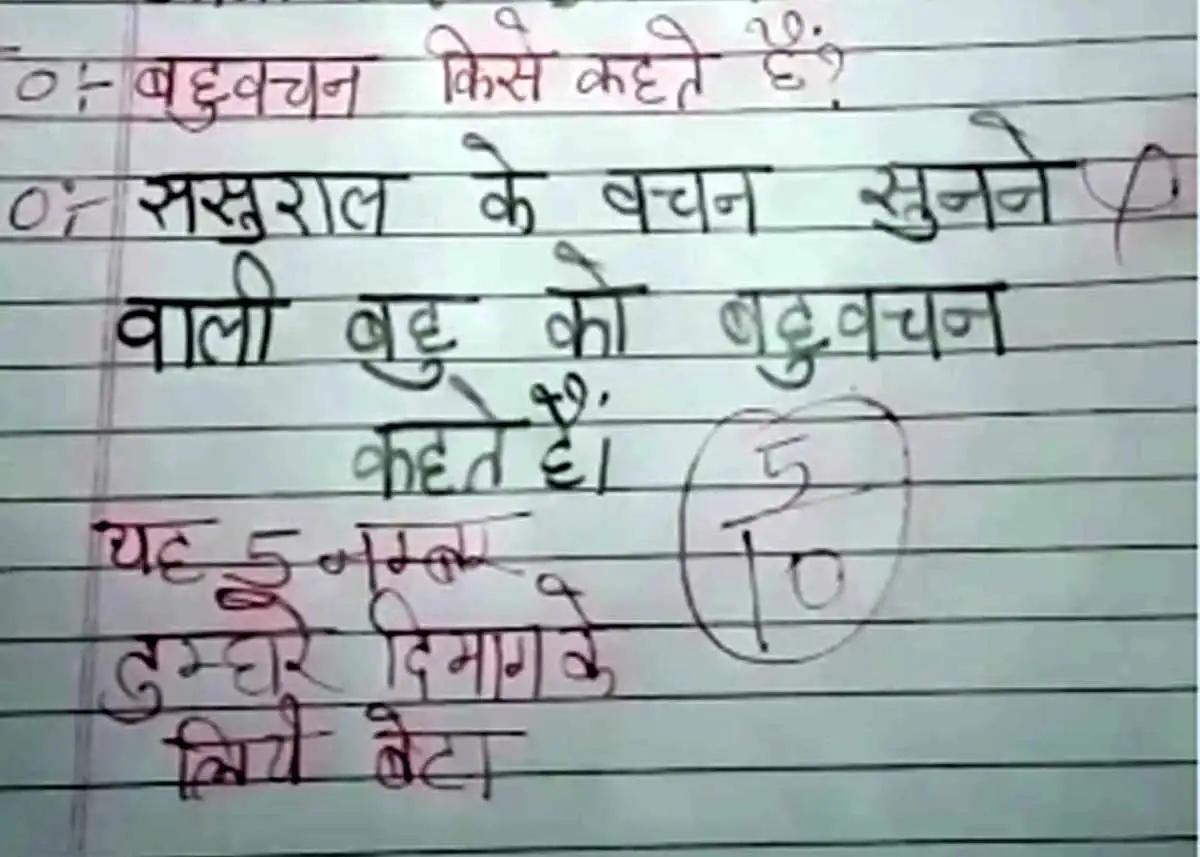 ०:- बहुवचन किसे कहते हैं?
०:- ससुराल के वचन सुनने
वाली बहु को बहुवचन
कहते हैं।
5
10
यह 5 नम्बर
तुम्हारे दिमाग के
लिये बेटा